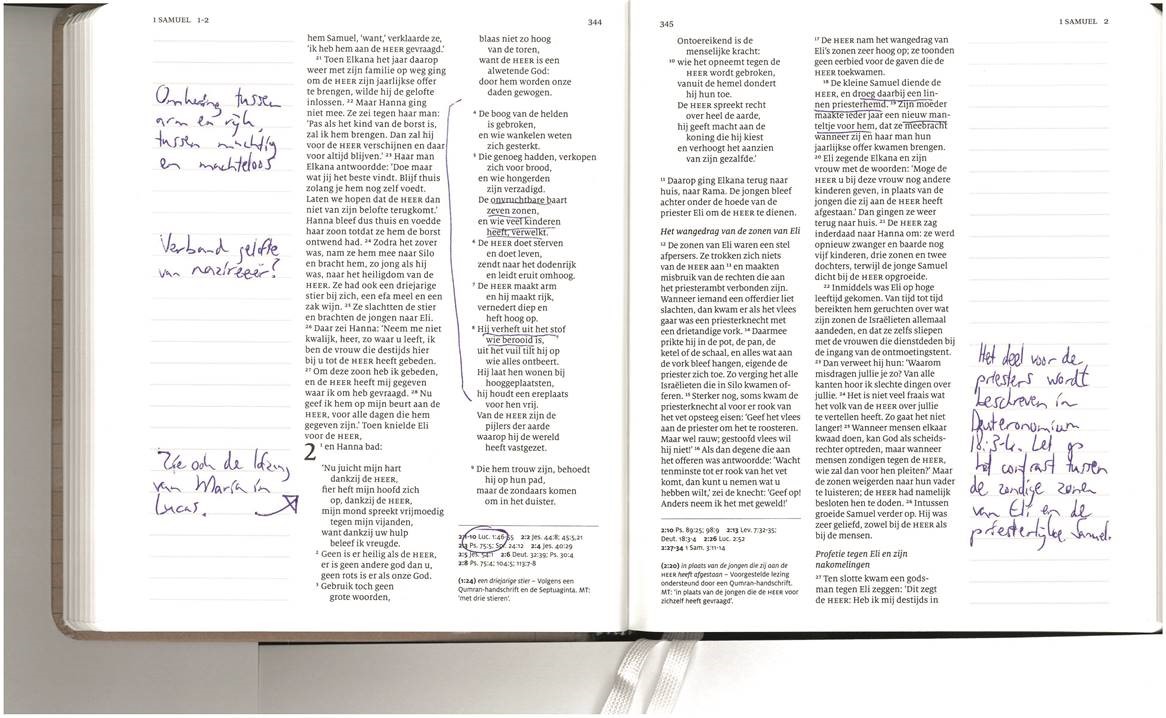 1 SAMUEL 1-2
344
Omkering tussen
arm en rijk,
tussen machtig
en machteloos
Verband gelofte
van nazireeër?
Zie ook de lofzang
van Maria in
Lucas.
hem Samuel, ‘want,’ verklaarde ze,
‘ik heb hem aan de HEER gevraagd.’
21 Toen Elkana het jaar daarop
weer met zijn familie op weg ging
om de HEER zijn jaarlijkse offer
te brengen, wilde hij de gelofte
inlossen. 22 Maar Hanna ging
niet mee. Ze zei tegen haar man:
‘Pas als het kind van de borst is,
zal ik hem brengen. Dan zal hij
voor de HEER verschijnen en daar
voor altijd blijven.’ 23 Haar man
Elkana antwoordde: ‘Doe maar
wat jij het beste vindt. Blijf thuis
zolang je hem nog zelf voedt.
Laten we hopen dat de HEER dan
niet van zijn belofte terugkomt.’
Hanna bleef dus thuis en voedde
haar zoon totdat ze hem de borst
ontwend had. 24 Zodra het zover
was, nam ze hem mee naar Silo
en bracht hem, zo jong als hij
was, naar het heiligdom van de
HEER. Ze had ook een driejarige
stier bij zich, een efa meel en een
zak wijn. 25 Ze slachtten de stier
en brachten de jongen naar Eli.
26 Daar zei Hanna: ‘Neem me niet
kwalijk, heer, zo waar u leeft, ik
ben de vrouw die destijds hier
bij u tot de HEER heeft gebeden.
27 Om deze zoon heb ik gebeden,
en de HEER heeft mij gegeven
waar ik om heb gevraagd. 28 Nu
geef ik hem op mijn beurt aan de
HEER, voor alle dagen die hem
gegeven zijn.’ Toen knielde Eli
voor de HEER,
2 1 en Hanna bad:
‘Nu juicht mijn hart
dankzij de HEER,
fier heft mijn hoofd zich
op, dankzij de HEER,
mijn mond spreekt vrijmoedig
tegen mijn vijanden,
want dankzij uw hulp
beleef ik vreugde.
2 Geen is er heilig als de HEER,
er is geen andere god dan u,
geen rots is er als onze God.
3 Gebruik toch geen
grote woorden,
blaas niet zo hoog
van de toren,
want de HEER is een
alwetende God:
door hem worden onze
daden gewogen.
4 De boog van de helden
is gebroken,
en wie wankelen weten
zich gesterkt.
5 Die genoeg hadden, verkopen
zich voor brood,
en wie hongerden
zijn verzadigd.
De onvruchtbare baart
zeven zonen,
en wie veel kinderen
heeft, verwelkt.
6 De HEER doet sterven
en doet leven,
zendt naar het dodenrijk
en leidt eruit omhoog.
7 De HEER maakt arm
en hij maakt rijk,
vernedert diep en
heft hoog op.
8 Hij verheft uit het stof
wie berooid is,
uit het vuil tilt hij op
wie alles ontbeert.
Hij laat hen wonen bij
hooggeplaatsten,
hij houdt een ereplaats
voor hen vrij.
Van de HEER zijn de
pijlers der aarde
waarop hij de wereld
heeft vastgezet.
9 Die hem trouw zijn, behoedt
hij op hun pad,
maar de zondaars komen
om in het duister.
2:1-10 Luc. 1:46-55 2:2 Jes. 44:8; 45:5,21
2:3 Ps. 75:5; Spr. 24:12 2:4 Jes. 40:29
2:5 Jes. 54:1 2:6 Deut. 32:39; Ps. 30:4
2:8 Ps. 75:4; 104:5; 113:7-8
(1:24) een driejarige stier – Volgens een
Qumran-handschrift en de Septuaginta. MT:
‘met drie stieren’.
345
1 SAMUEL 2
Ontoereikend is de
menselijke kracht:
10 wie het opneemt tegen de
HEER wordt gebroken,
vanuit de hemel dondert
hij hun toe.
De HEER spreekt recht
over heel de aarde,
hij geeft macht aan de
koning die hij kiest
en verhoogt het aanzien
van zijn gezalfde.’
11 Daarop ging Elkana terug naar
huis, naar Rama. De jongen bleef
achter onder de hoede van de
priester Eli om de HEER te dienen.
Het wangedrag van de zonen van Eli
12 De zonen van Eli waren een stel
afpersers. Ze trokken zich niets
van de HEER aan 13 en maakten
misbruik van de rechten die aan
het priesterambt verbonden zijn.
Wanneer iemand een offerdier liet
slachten, dan kwam er als het vlees
gaar was een priesterknecht met
een drietandige vork. 14 Daarmee
prikte hij in de pot, de pan, de
ketel of de schaal, en alles wat aan
de vork bleef hangen, eigende de
priester zich toe. Zo verging het alle
Israëlieten die in Silo kwamen of-
feren. 15 Sterker nog, soms kwam de
priesterknecht al voor er rook van
het vet opsteeg eisen: ‘Geef het vlees
aan de priester om het te roosteren.
Maar wel rauw; gestoofd vlees wil
hij niet!’ 16 Als dan degene die aan
het offeren was antwoordde: ‘Wacht
tenminste tot er rook van het vet
komt, dan kunt u nemen wat u
hebben wilt,’ zei de knecht: ‘Geef op!
Anders neem ik het met geweld!’
2:10 Ps. 89:25; 98:9 2:13 Lev. 7:32-35;
Deut. 18:3-4 2:26 Luc. 2:52
2:27-34 1 Sam. 3:11-14
(2:20) in plaats van de jongen die zij aan de
HEER heeft afgestaan – Voorgestelde lezing
ondersteund door een Qumran-handschrift.
MT: ‘in plaats van de jongen die de HEER voor
zichzelf heeft gevraagd’.
17 De HEER nam het wangedrag van
Eli’s zonen zeer hoog op; ze toonden
geen eerbied voor de gaven die de
HEER toekwamen.
18 De kleine Samuel diende de
HEER, en droeg daarbij een lin-
nen priesterhemd. 19 Zijn moeder
maakte ieder jaar een nieuw man-
teltje voor hem, dat ze meebracht
wanneer zij en haar man hun
jaarlijkse offer kwamen brengen.
20 Eli zegende Elkana en zijn
vrouw met de woorden: ‘Moge de
HEER u bij deze vrouw nog andere
kinderen geven, in plaats van de
jongen die zij aan de HEER heeft
afgestaan.’ Dan gingen ze weer
terug naar huis. 21 De HEER zag
inderdaad naar Hanna om: ze werd
opnieuw zwanger en baarde nog
vijf kinderen, drie zonen en twee
dochters, terwijl de jonge Samuel
dicht bij de HEER opgroeide.
22 Inmiddels was Eli op hoge
leeftijd gekomen. Van tijd tot tijd
bereikten hem geruchten over wat
zijn zonen de Israëlieten allemaal
aandeden, en dat ze zelfs sliepen
met de vrouwen die dienstdeden bij
de ingang van de ontmoetingstent.
23 Dan verweet hij hun: ‘Waarom
misdragen jullie je zo? Van alle
kanten hoor ik slechte dingen over
jullie. 24 Het is niet veel fraais wat
het volk van de HEER over jullie
te vertellen heeft. Zo gaat het niet
langer! 25 Wanneer mensen elkaar
kwaad doen, kan God als scheids-
rechter optreden, maar wanneer
mensen zondigen tegen de HEER,
wie zal dan voor hen pleiten?’ Maar
de zonen weigerden naar hun vader
te luisteren; de HEER had namelijk
besloten hen te doden. 26 Intussen
groeide Samuel verder op. Hij was
zeer geliefd, zowel bij de HEER als
bij de mensen.
Profetie tegen Eli en zijn
nakomelingen
27 Ten slotte kwam een gods-
man tegen Eli zeggen: ‘Dit zegt
de HEER: Heb ik mij destijds in
Het deel voor de
priesters wordt
beschreven in
Deuteronomium
18:3-4. Let op
het contrast tussen
de zondige zonen
van Eli en de
priesterlijke Samuel.